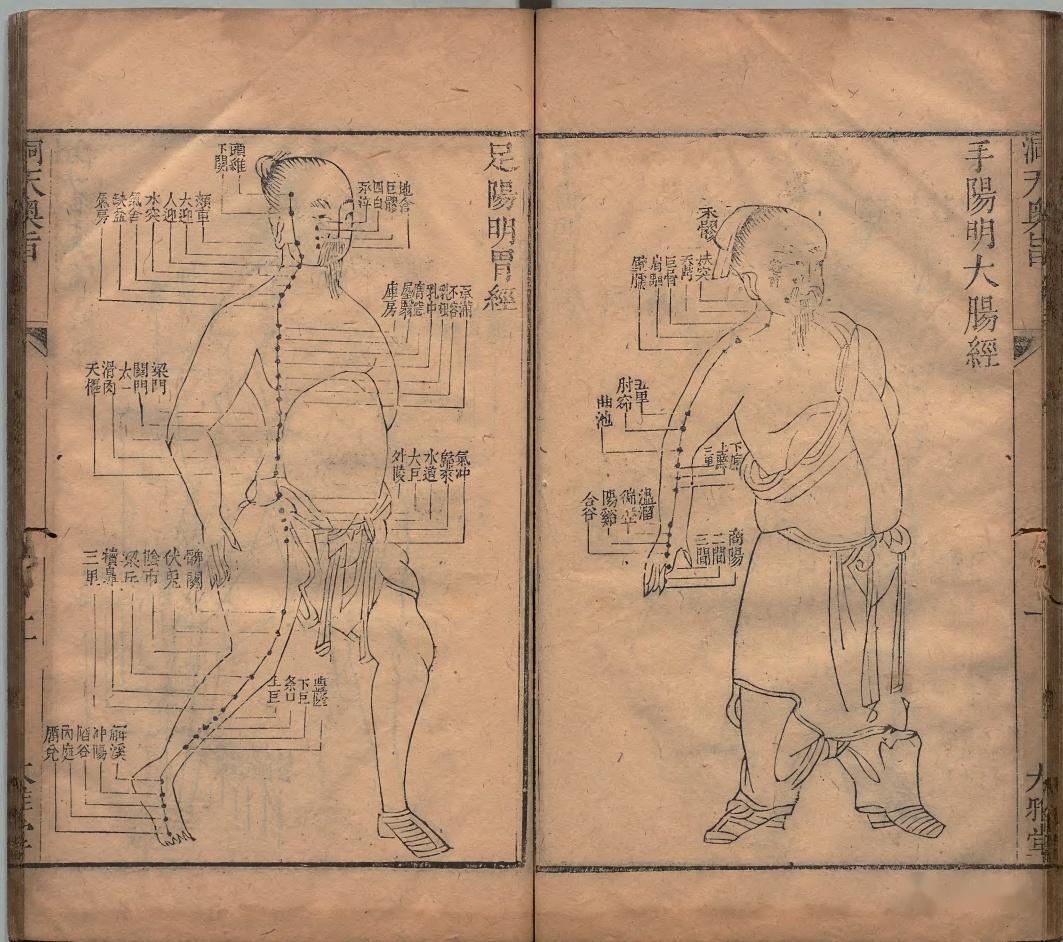 手陽明大腸經
禾髎
扶突
天鼎
巨骨
肩髃
臂臑
五里
肘窌
曲池
下廉
上廉
三里
溫溜
陽谿
合谷
商陽
二間
三間
大雅堂
洞天奧旨
足陽明胃經
頭維
下關
地合
巨髎
四白
承泣
頰車
大迎
人迎
水突
氣舍
缺盆
氣房
承滿
不容
乳根
乳中
屋翳
庫房
梁門
關門
太一
滑肉
天樞
氣冲
歸來
水道
大巨
外陵
髀關
伏兔
陰市
梁丘
犢鼻
三里
豐隆
下巨
条口
上巨
解溪
冲陽
陷谷
內庭
厲兌
洞天奧旨